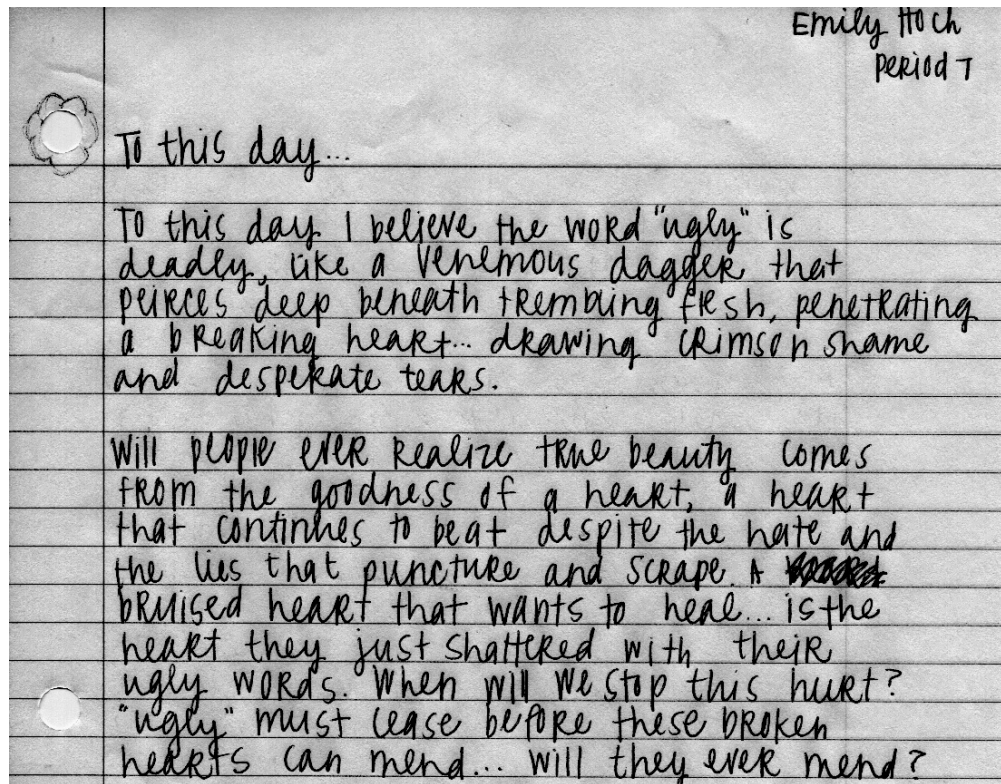 Emily Hoch
Period 7
To this day...
To this day I believe the word "ugly" is
deadly, like a venemous dagger that
peirces deep beneath trembling flesh, penetrating
a breaking heart... drawing crimson shame
and desperate tears.
Will people ever realize true beauty comes
from the goodness of a heart, a heart
that continues to beat despite the hate and
the lies that puncture and scrape. A
bruised heart that wants to heal... is the
heart they just shattered with their
ugly words. When will we stop this hurt?
"ugly" must cease before these broken
hearts can mend... will they ever mend?